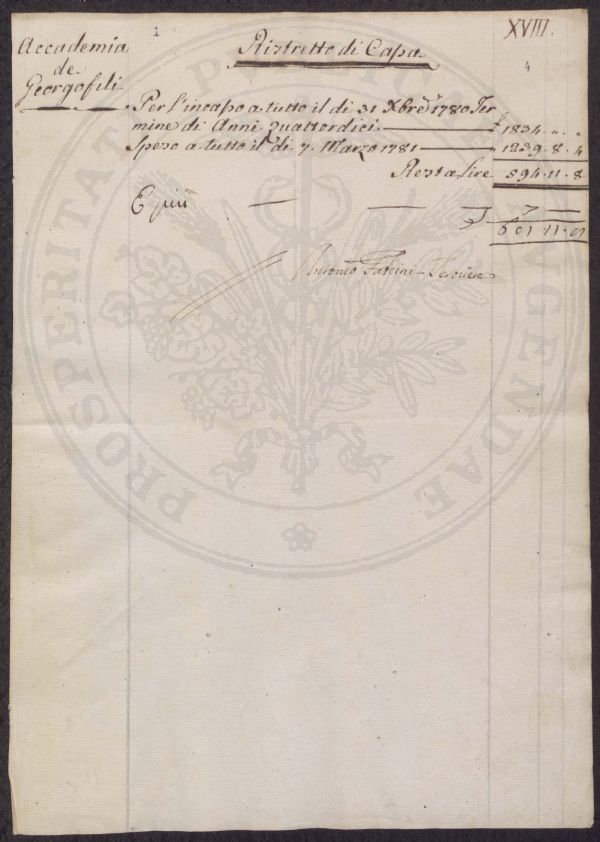 XVIII.
1
4
Accademia
de
Georgofili
Ristretto di Cassa
Per l'incasso a tutto il di 31 Xbre 1780 Ter
mine di Anni quattordici £ 1834 . „ . „
Speso a tutto il di 7. Marzo 1781 „ 1239 . 8 . 4
Resta Lire 594 . 11 . 8
E più — — 7 —
601 . 11 .
Antonio
PROSPERITATI PUBLICAE AUGENDAE